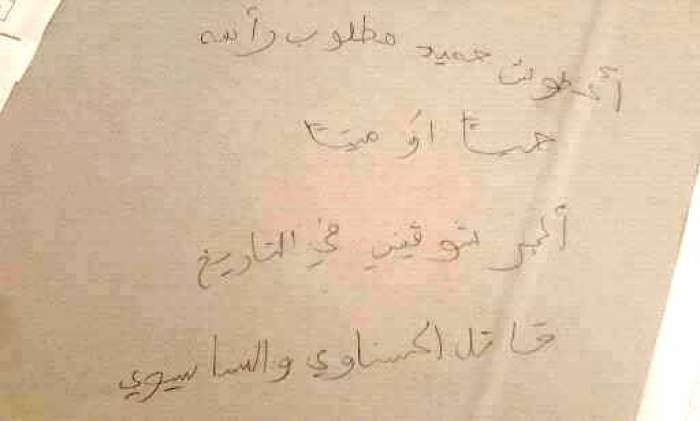 أنطونت حميد مطلوب رأسه
حيتا أو ميتا
ألمبر توقيتي في التاريخ
قاتل الحسناوي والساسيوي